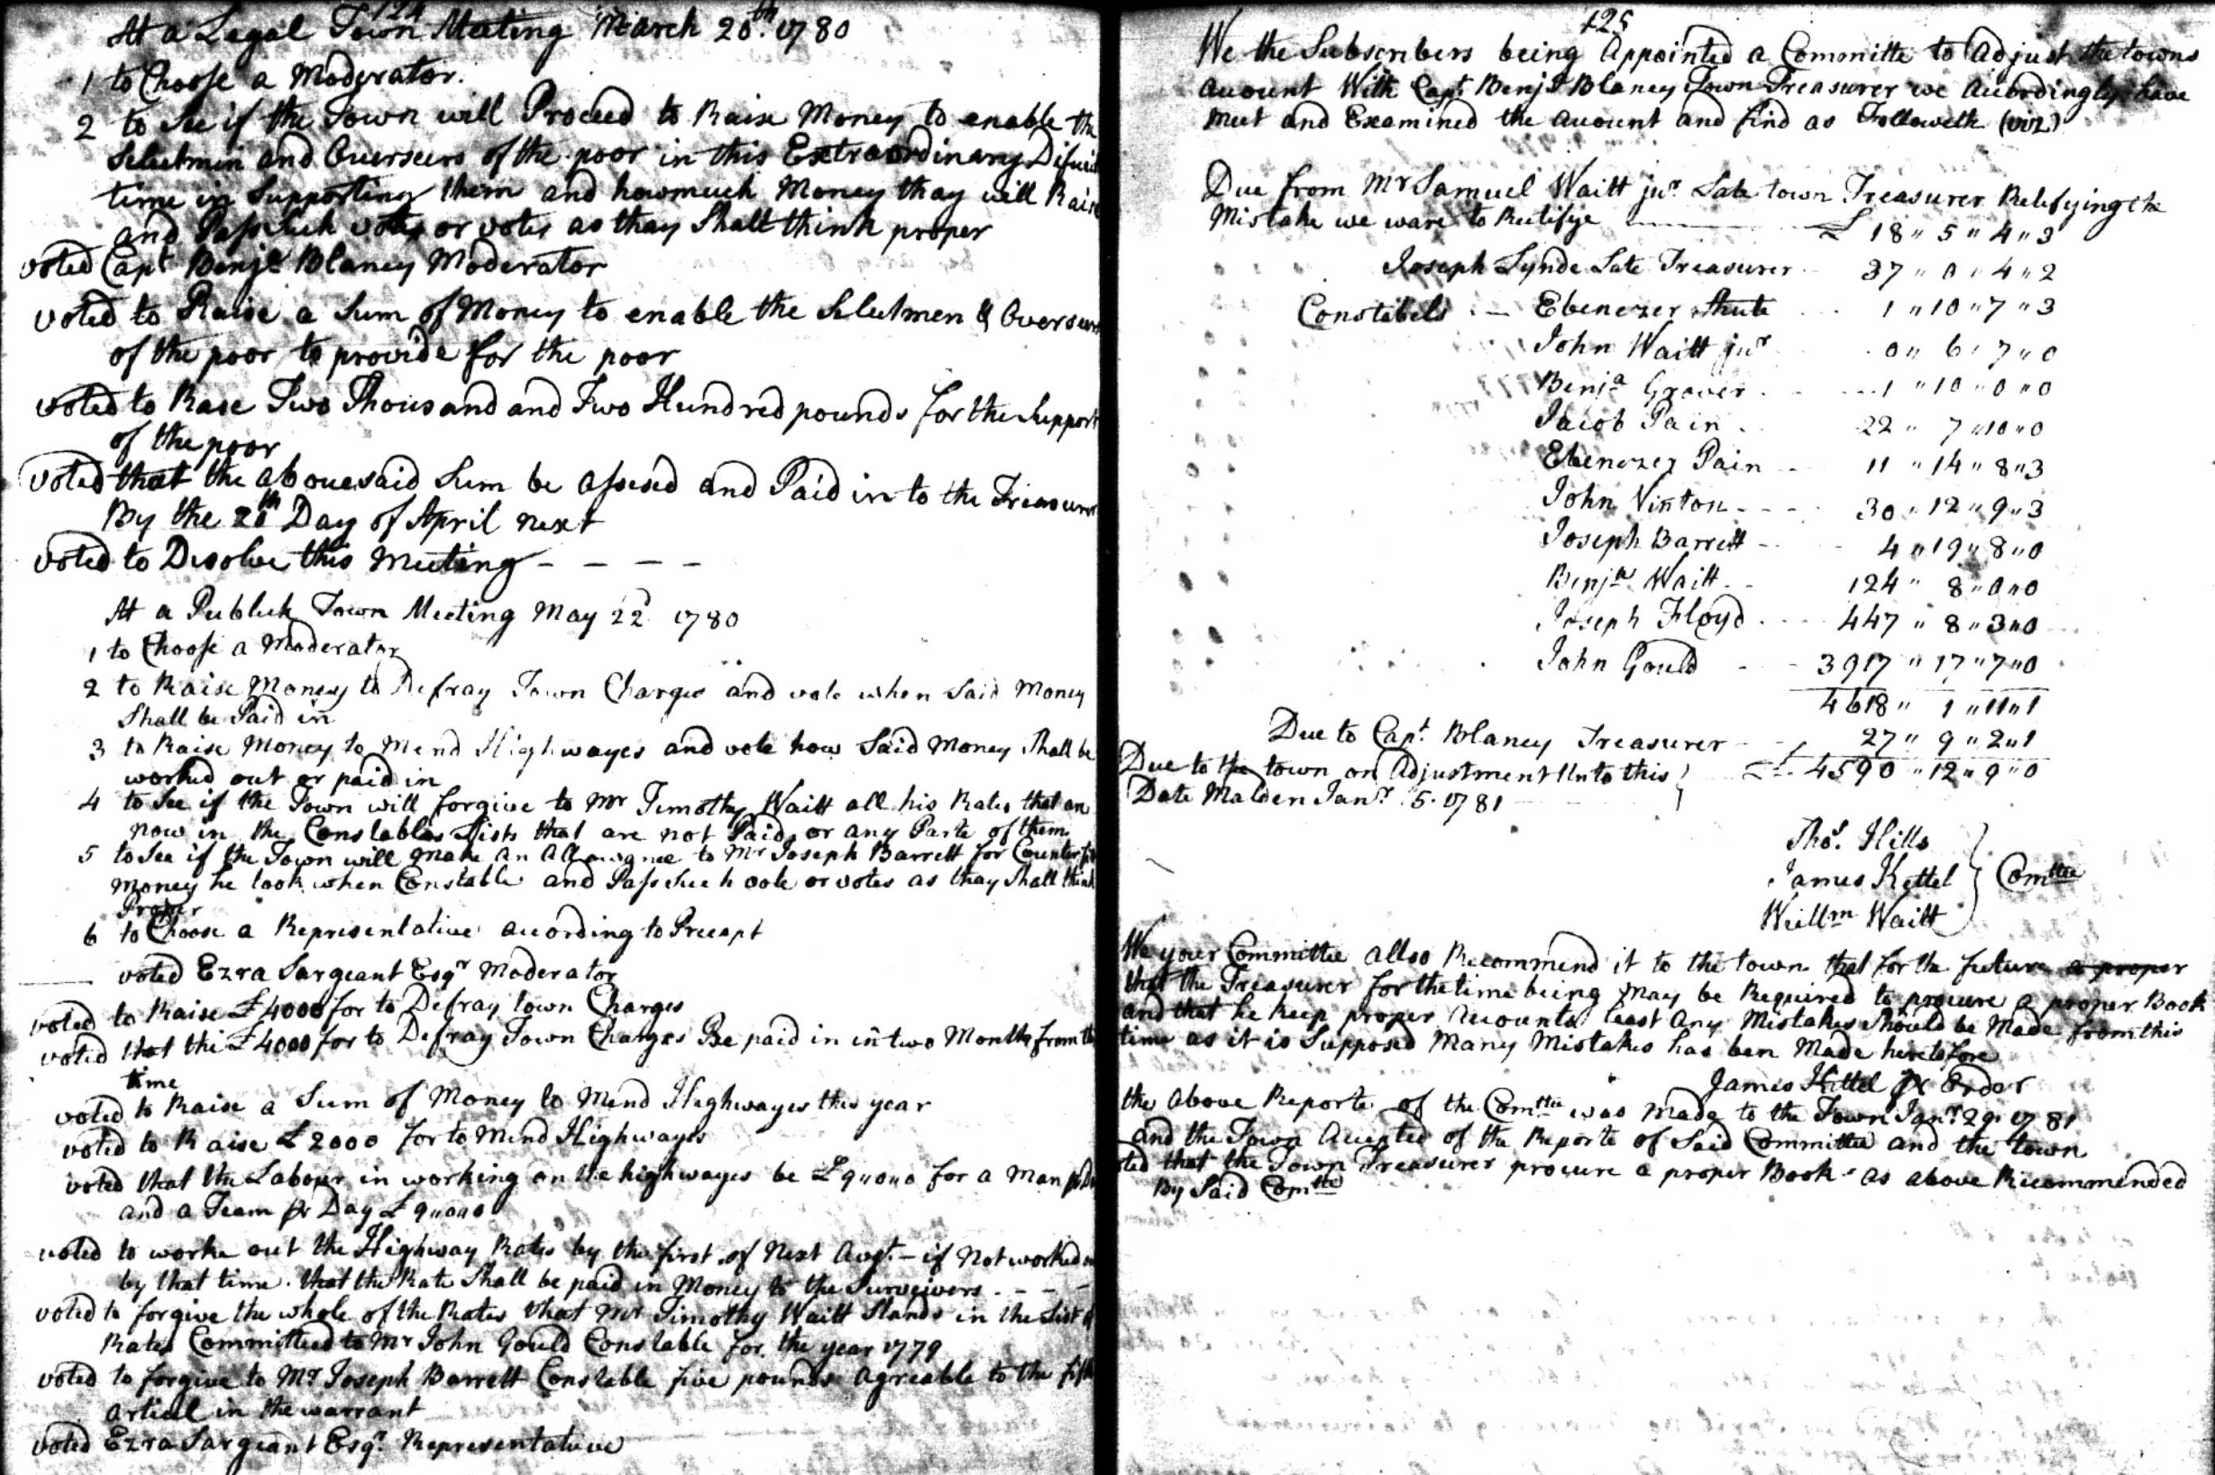 124
At a Legal Town Meeting March 20th. 1780
1 to Choose a Moderator.
2 to See if the Town will Proceed to Raise Money to enable the
Selectmen and Overseers of the poor in this Extraordinary
time in Supporting them and howmuch Money thay will Raise
and Pass Such vote or votes as thay Shall think proper
voted Capt Benja Blaney Moderator
voted to Raise a Sum of Money to enable the Selectmen & Overseers
of the poor to provide for the poor
voted to Rase Two Thousand and Two Hundred pounds for the Support
of the poor
voted that the abovesaid Sum be assesed and Paid in to the Treasurer
By the 20th Day of April next
voted to Desolve this Meeting - - - -
At a Publick Town Meeting May 22d 1780
1 to Choose a Moderator
2 to Raise Money to Defray Town Charges and vote when Said Money
Shall be Paid in
3 to Raise Money to Mend Highwayes and vote how Said Money Shall be
worked out or paid in
4 to See if the Town will forgive to Mr Timothy Waitt all his Rates that are
now in the Constables Lists that are not Paid, or any Parte of them
5 to See if the Town will make an Allowance to Mr Joseph Barrett for
Money he took when Constable and Pass Such vote or votes as thay Shall think
Proper
6 to Choose a Representative according to Precept
voted Ezra Sargeant Esqr Moderator
voted to Raise £4000 for to Defray town Charges
voted that the £4000 for to Defray Town Charges Be paid in in two Months from this
time
voted to Raise a Sum of Money to Mend Highwayes this year
voted to Raise £2000 for to Mend Highwayes
voted that the Labour in working on the highwayes be £9"0"0 for a Man pr Day
and a Team pr Day £9"0"0
voted to worke out the Highway Rates by the first of Next Augt. - if Not worked
by that time that the Rate Shall be paid in Money to the Surveivers - - -
voted to forgive the whole of the Rates that Mr Timothy Waitt Stands in the List of
Rates Committeed to Mr John Gould Constable for the year 1779
voted to forgive to Mr Joseph Barrett Constable five pounds Agreable to the fifth
artical in the warrant
voted Ezra Sargeant Esqr. Representative
125
We the Subscribers being Appointed a Committe to Adjust the towns
Account With Capt. Benja Blaney Town Treasurer we Accordingly have
meet and Examined the account and find as Followeth (viz)
Due from Mr Samuel Waitt junr. Late town Treasurer Retifying the
Mistake we ware to Rectifye £ 18"5"4"3
Joseph Lynde Late Treasurer 37"0"4"2
Constibels - Ebenezer Shute 1"10"7"3
John Waitt junr 0"6"7"0
Benja Grover 1"10"0"0
Jacob Pain 22"7"10"0
Ebenezer Pain 11"14"8"3
John Vinton 30"12"9"3
Joseph Barrett 4"19"8"0
Benja Waitt 124"8"0"0
Joseph Floyd 447"8"3"0
John Gould 3917"17"7"0
4618"1"11"1
Due to Capt. Blaney Treasurer 27"9"2"1
Due to the town on Adjustment Unto this £ 4590"12"9"0
Date Malden Janr. 5. 1781
Thos. Hills
James Kettel Comttee
Willm Waitt
We your Committee allso Recommend it to the town that for the future a proper
that the Treasurer for the time being May be Required to procure a proper Book
and that he keep proper Accounts least Any Mistakes Should be Made from this
time as it is Supposed Many Mistakes has ben Made heretofore
James Kettel pr Order
the above Reporte of the Comttee was Made to the Town Janr. 29. 1781
and the Town Accepted of the Reporte of Said Committee and the town
voted that the Town Treasurer procure a proper Book as above Recommended
By Said Comttee